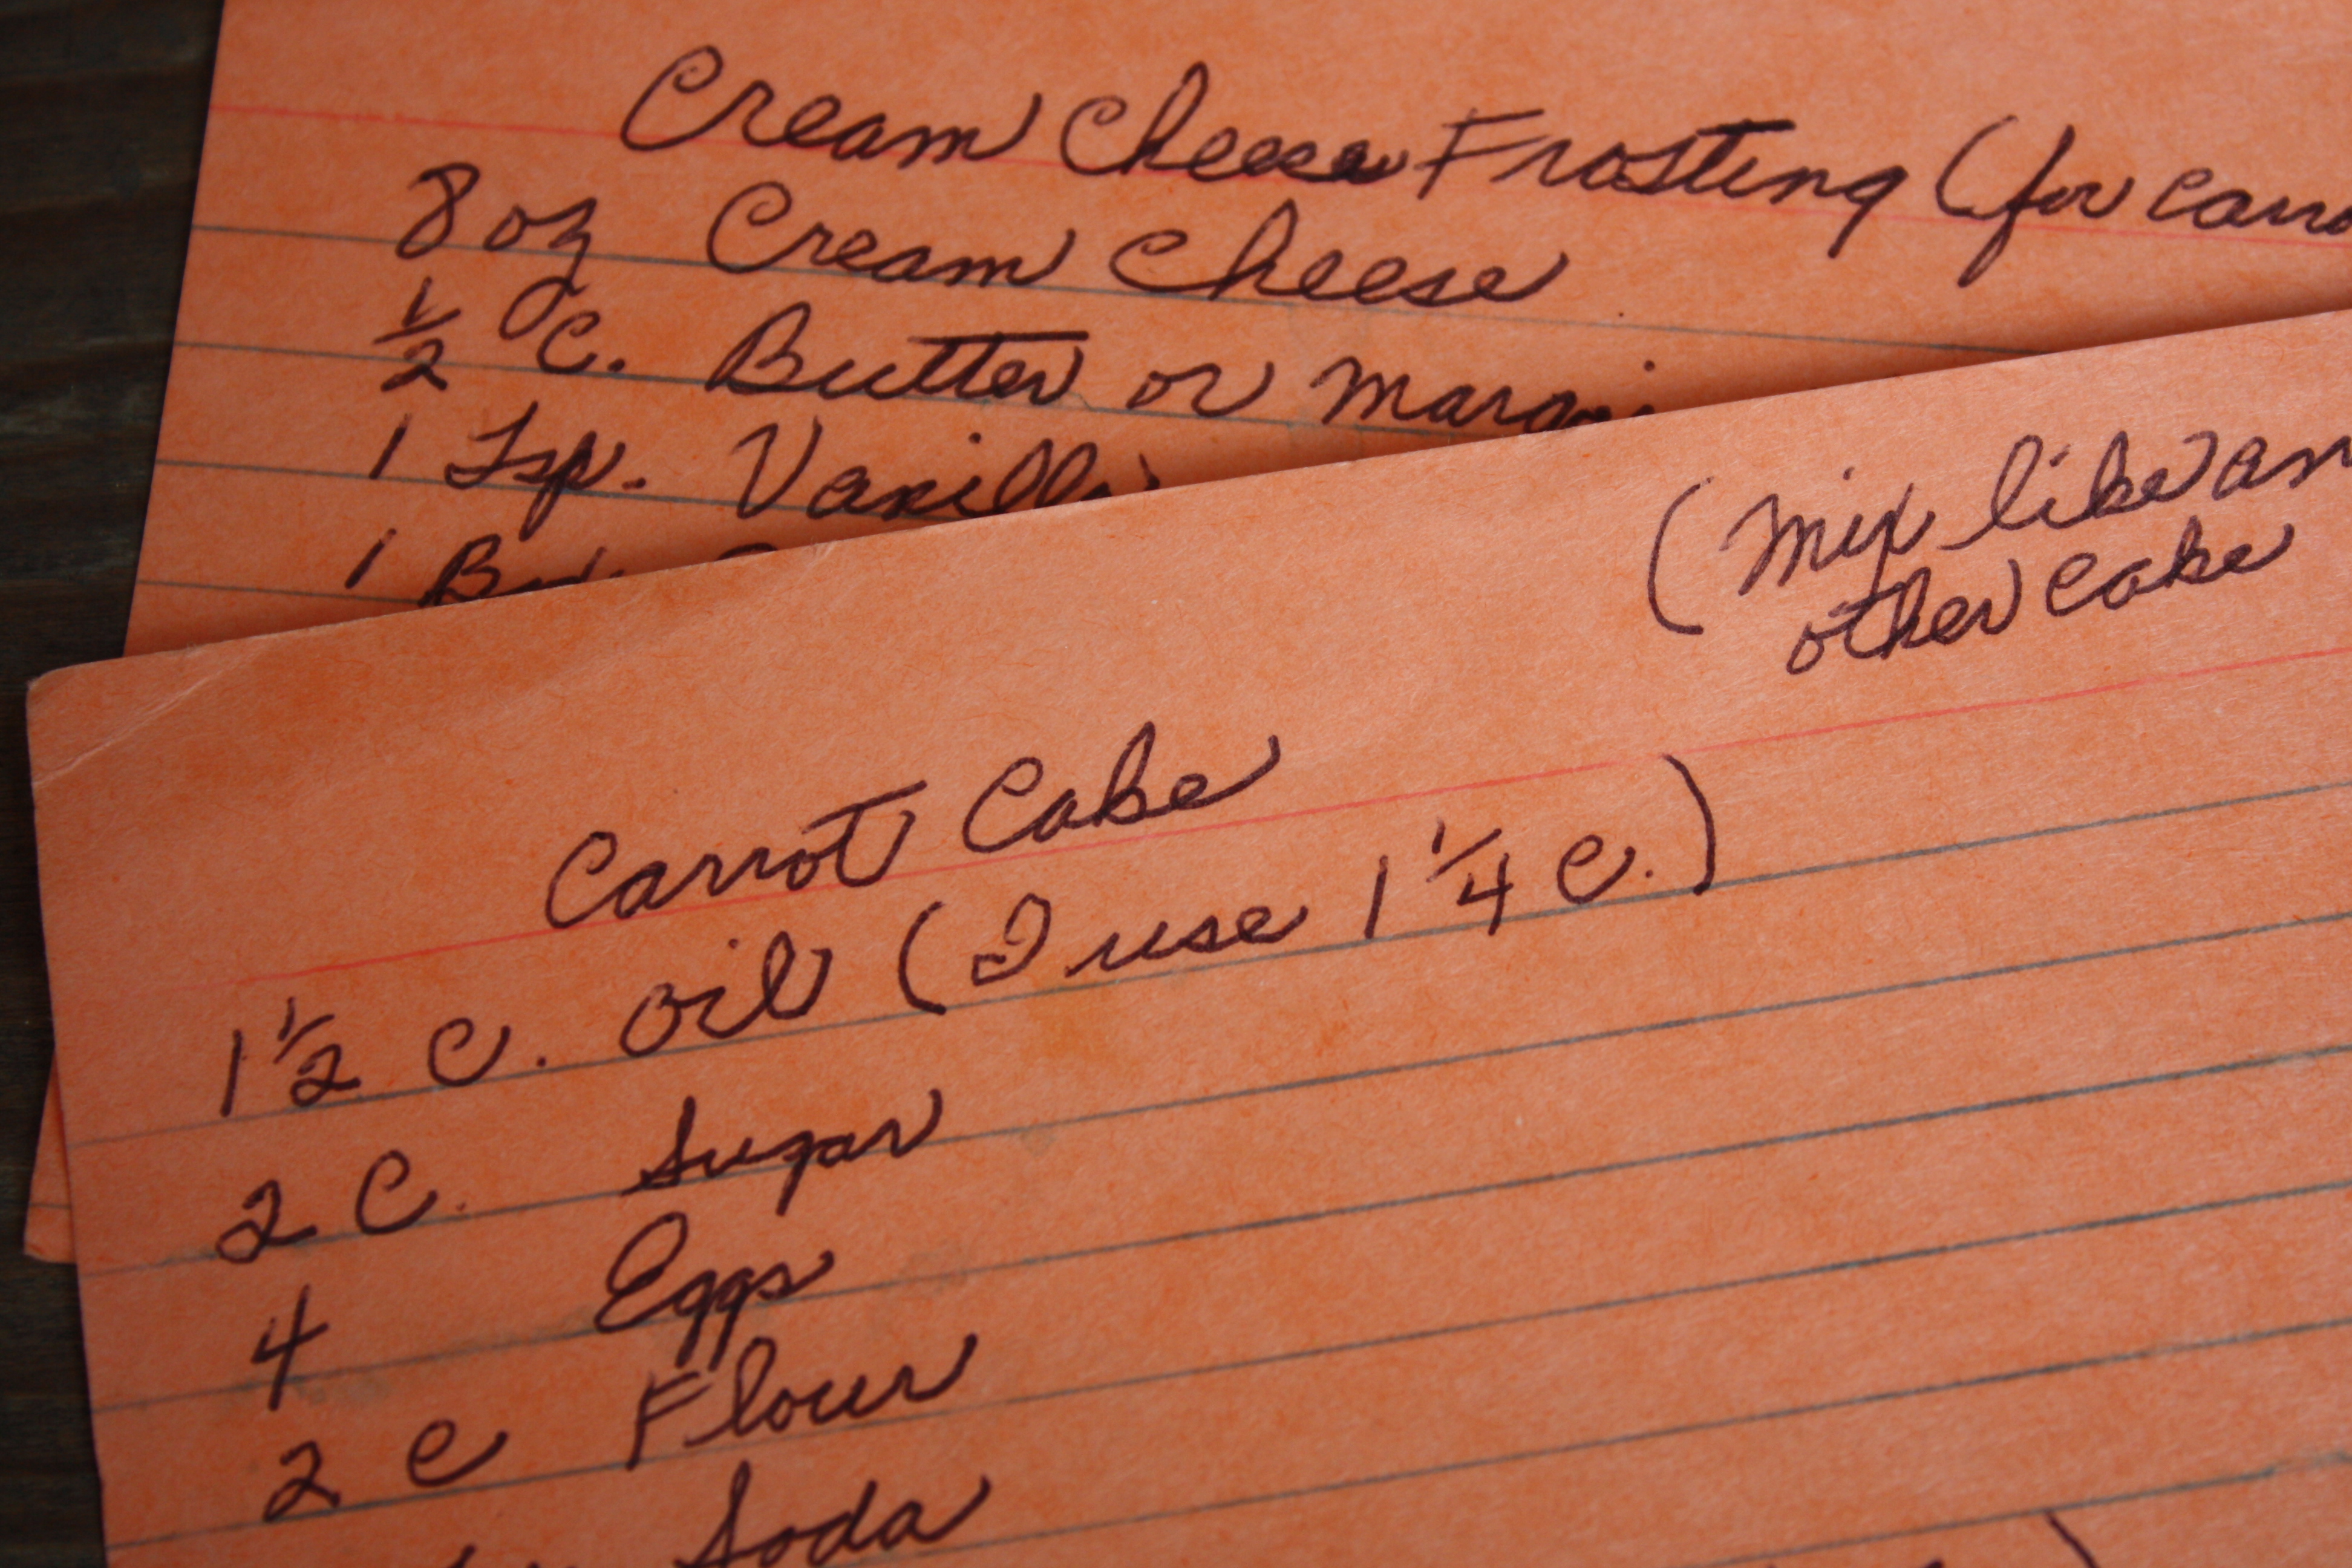 Cream Cheese Frosting (for
8 oz Cream Cheese
1/2 C. Butter or
1 Tsp. Vanilla
1
(Mix like
other cake
Carrot Cake
1 1/2 C. oil (I use 1 1/4 C.)
2 C. Sugar
4 Eggs
2 C Flour
Soda